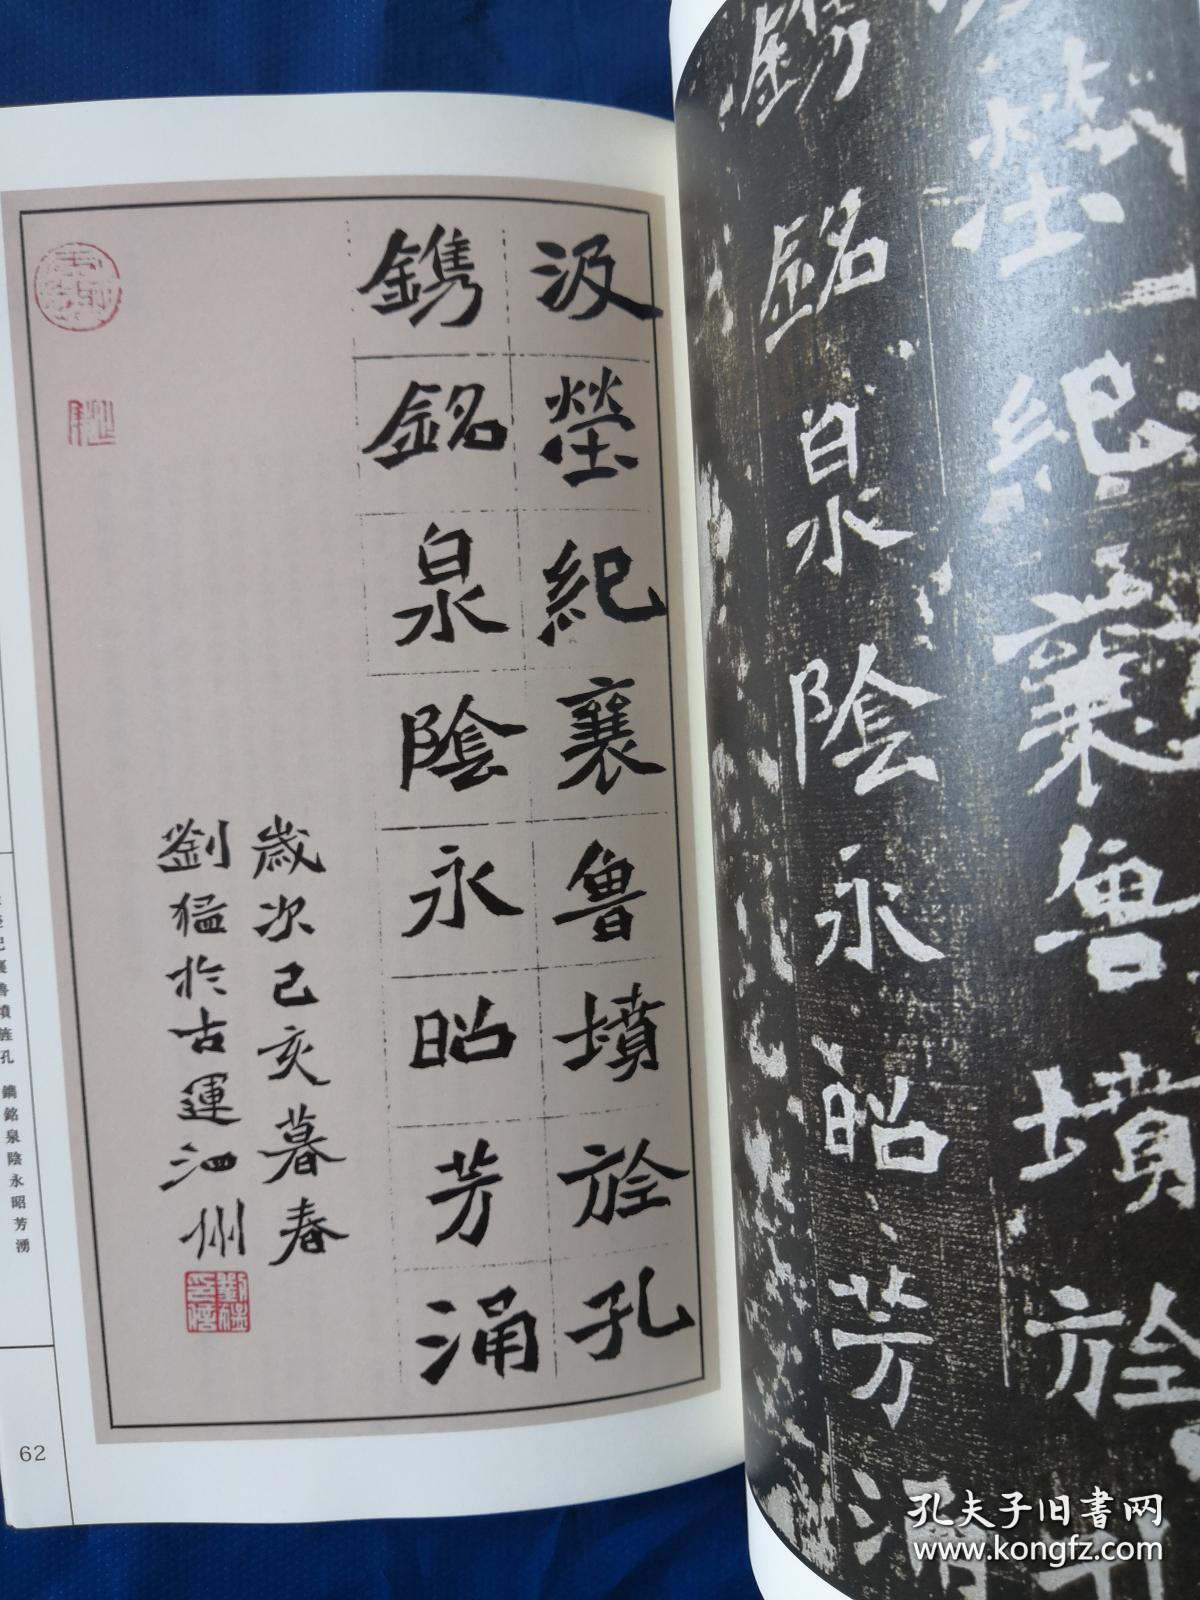 汲塋紀襄魯墳旌孔
鐫銘泉陰永昭芳涌
歲次己亥暮春
劉猛於古運泗州
塋紀襄魯墳旌孔 鐫銘泉陰永昭芳湧
62
塋紀襄魯墳旌孔
鐫銘泉陰永昭芳涌
孔夫子旧书网
www.kongfz.com